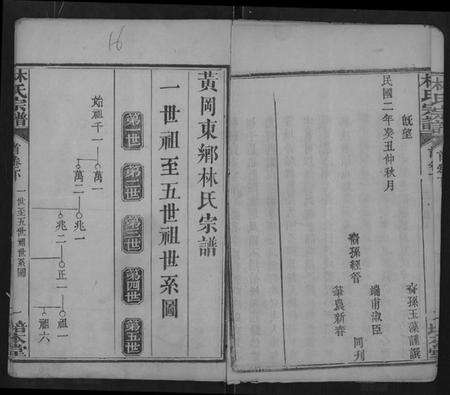 林氏宗譜
首卷
民國二年癸丑仲秋月
既望
裔孫玉藻謹撰
裔孫經管
瑞甫淑臣
華農新春
同刊
16
黃岡東鄉林氏宗譜
一世祖至五世祖世系圖
第一世
第二世
第三世
第四世
第五世
始祖千一
萬一
萬二
兆一
兆二
正一
祖一
祖六
林氏宗譜
首卷下
一世至五世祖世系圖
一